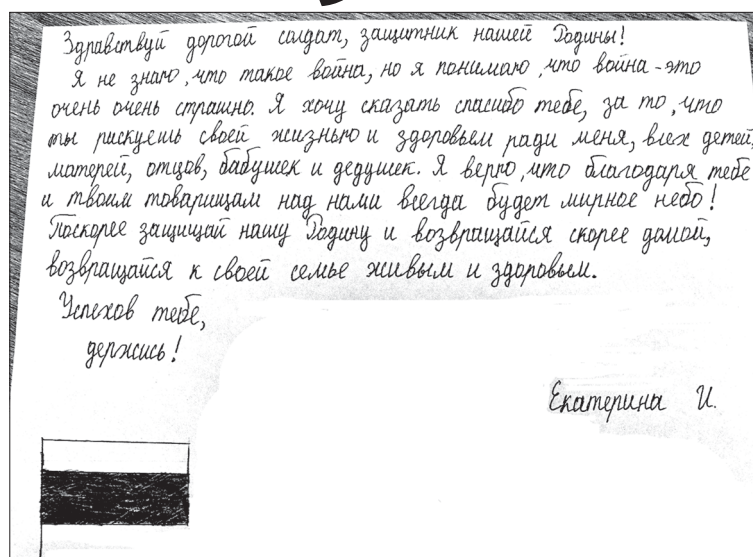 Здравствуй дорогой солдат, защитник нашей Родины!
Я не знаю, что такое война, но я понимаю, что война - это
очень очень страшно. Я хочу сказать спасибо тебе, за то, что
ты рискуешь своей жизнью и здоровьем ради меня, всех детей,
матерей, отцов, бабушек и дедушек. Я верю, что благодаря тебе
и твоим товарищам над нами всегда будет мирное небо!
Поскорее защищай нашу Родину и возвращайся скорее домой,
возвращайся к своей семье живым и здоровым.
Успехов тебе,
держись!
Екатерина И.